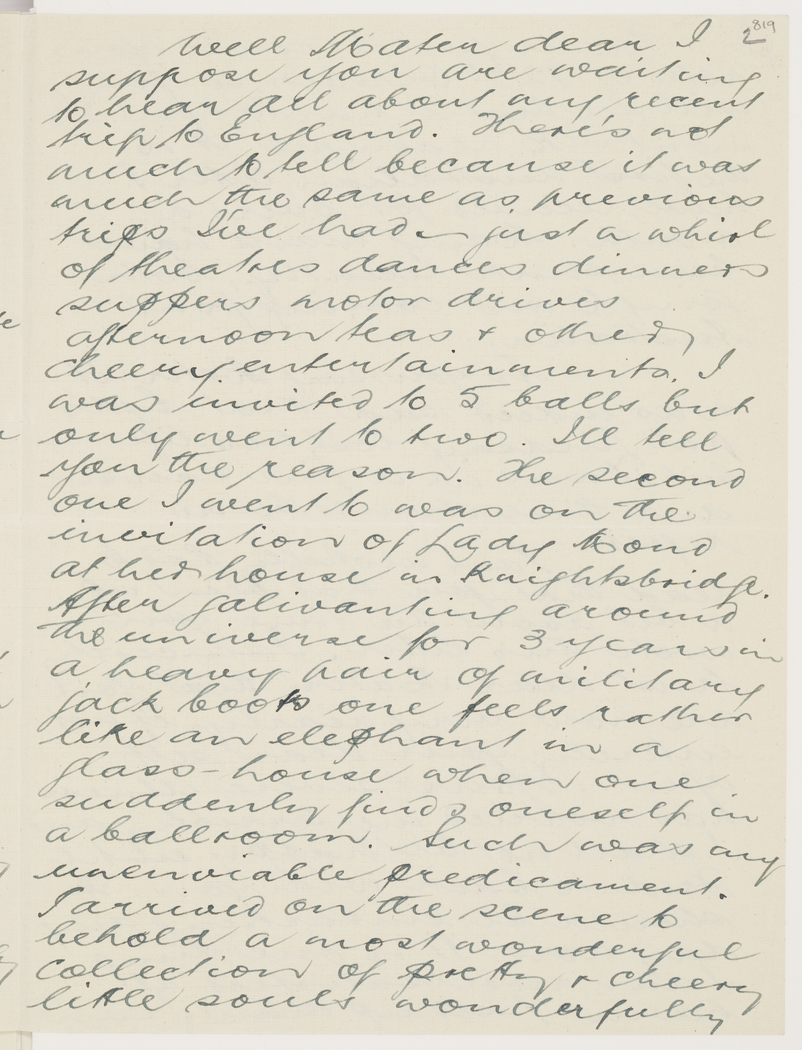 819
2
Well Mater dear I
suppose you are waiting
to hear all about my recent
trip to England. There's not
much to tell because it was
much the same as previous
trips I've had – just a whirl
of theatres dances dinners
suppers motor drives
afternoon teas & other
cheery entertainments. I
was invited to 5 balls but
only went to two. I'll tell
you the reason. The second
one I went to was on the
invitation of Lady Mond
at her house in Knightsbridge.
After galivanting around
the universe for 3 years in
a heavy pair of military
jack boots one feels rather
like an elephant in a
glass-house when one
suddenly finds oneself in
a ballroom. Such was my
unenviable predicament.
I arrived on the scene to
behold a most wonderful
collection of pretty & cheery
little souls wonderfully